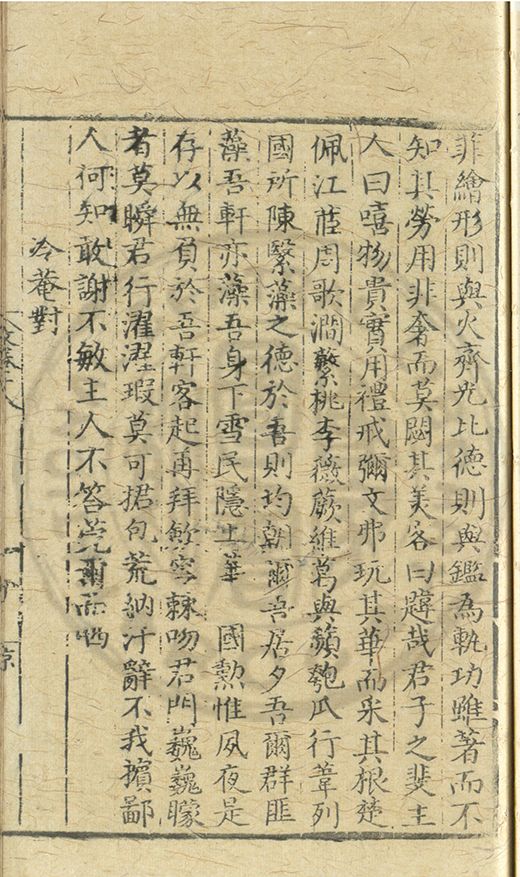 菲繪形則與火齊光比德則與鑑為軌功雖著而不
知其勞用非奢而莫閼其美客曰韙哉君子之斐主
人曰嘻物貴實用禮戒彌文弗玩其華而采其根楚
佩江蓠周歌澗蘩桃李薇蕨維葛與蘋匏瓜行葦列
國所陳繄藻之德於吾則均朝爾吾居夕吾爾群匪
藻吾軒亦藻吾身下雪民隱上華 國勲惟夙夜是
存以無負於吾軒客起再拜斂容棘吻君門巍巍矇
者莫瞬君行濯濯瑕莫可捃包荒納汙辭不我擯鄙
人何知敢謝不敏主人不答莞爾而哂
冷菴對